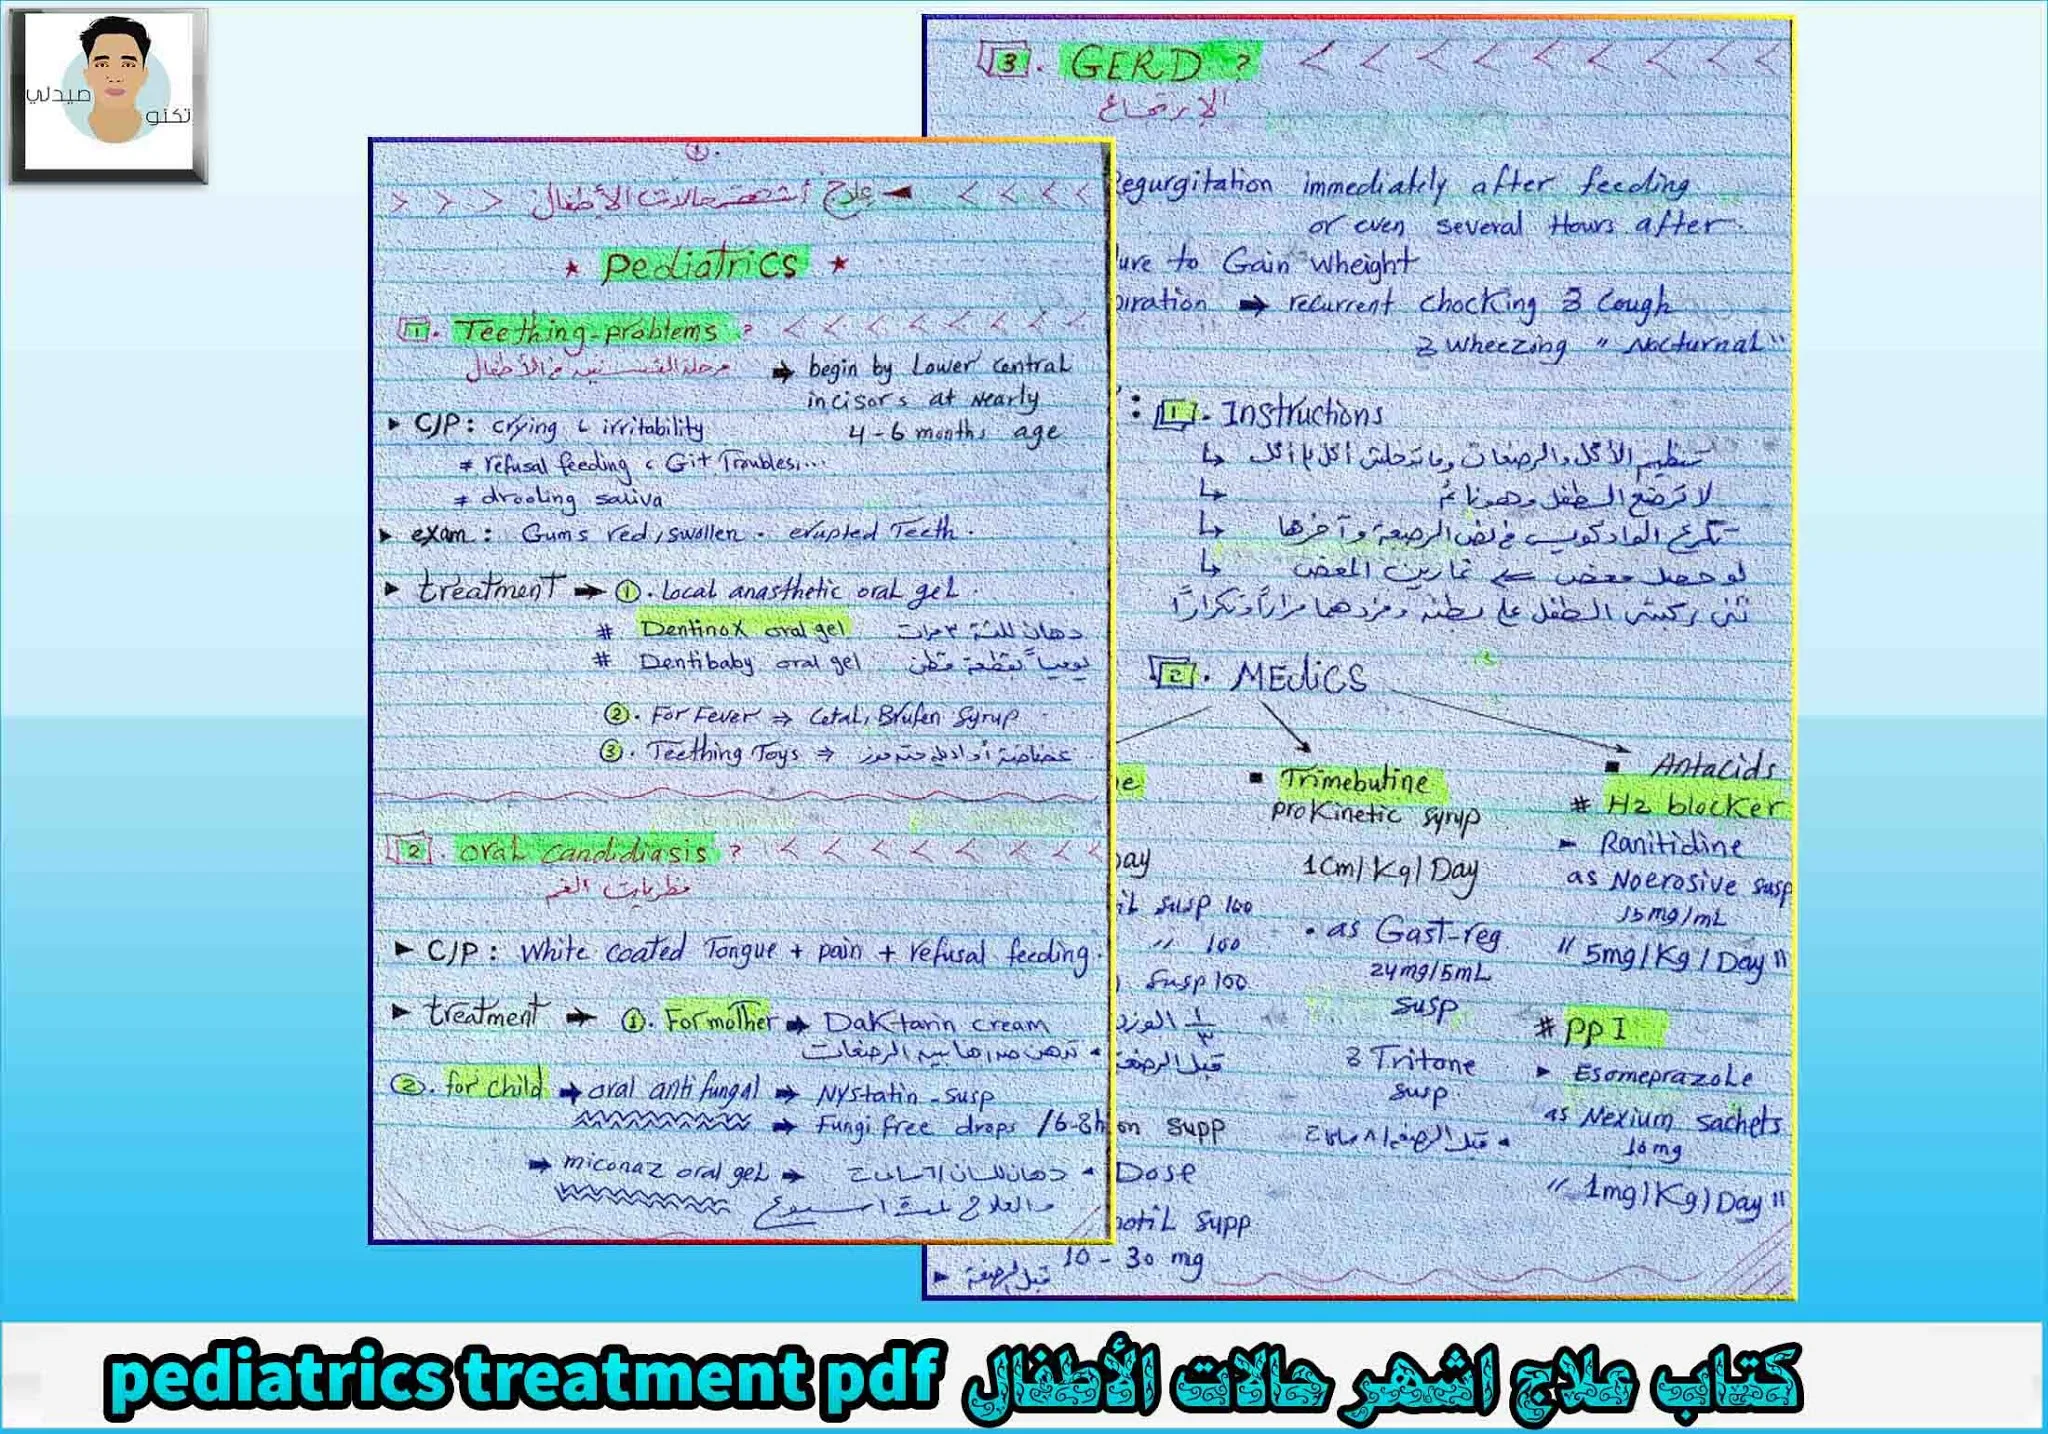 صيدلي
تكنو
1.
علاج أشهر حالات الأطفال
Pediatrics
1. Teething-problems ?
مرحلة التسنين في الأطفال
➡ begin by Lower central
incisors at nearly
4-6 months age
C/P : crying , irritability
# refusal feeding , Git Troubles,...
# drooling saliva
exam : Gums red, swollen . erupted Teeth .
treatment ➡ 1. Local anasthetic oral gel .
# Dentinox oral gel دهان للثة ٣ مرات
# Dentibaby oral gel يومياً بقطعة قطن
2. For Fever ⇒ Cetal, Brufen syrup
3. Teething Toys ⇒ عضاضة أو
2. oral candidiasis ?
فطريات الفم
C/P : White coated Tongue + pain + refusal feeding .
treatment ➡ 1. For mother ➡ Daktarin cream
تدهن صدرها بين الرضعات
2. for child ➡ oral anti fungal ➡ Nystatin - susp
➡ Fungi free drops /6-8h
➡ miconaz oral gel ➡ دهان للسان /٦ ساعات
والعلاج لمدة أسبوع
3. GERD ?
الإرتجاع
egurgitation immediately after feeding
or even several Hours after .
ure to Gain wheight
piration ➡ recurrent chocking & Cough
& wheezing " Nocturnal "
: 1. Instructions
تنظيم الأكل والرضعات وماتدخلش أكل ع أكل
لا ترضع الطفل وهو نائم
تكرع الواد كويس في نص الرضعة وآخرها
لو حصل مغص ⇐ تمارين المغص
تني ركبتي الطفل على بطنه وفردهما مراراً وتكراراً
2. MEdics
e
Trimebutine
proKinetic syrup
1Cm/Kg/Day
as Gast-reg
24mg/5mL
susp
& Tritone
susp.
قبل الرضعة / ٨ ساعات
Antacids
# H2 blocker
- Ranitidine
as Noerosive susp
15mg/mL
" 5mg/Kg/Day "
# PPI
Esomeprazole
as Nexium sachets
10mg
" 1mg/Kg/Day "
ay
iL susp 100
" 100
susp 100
١/٣ الوزن
قبل الرضعة
on supp
Dose
otiL supp
10 - 30 mg
قبل الرضعة
pediatrics treatment pdf كتاب علاج اشهر حالات الأطفال